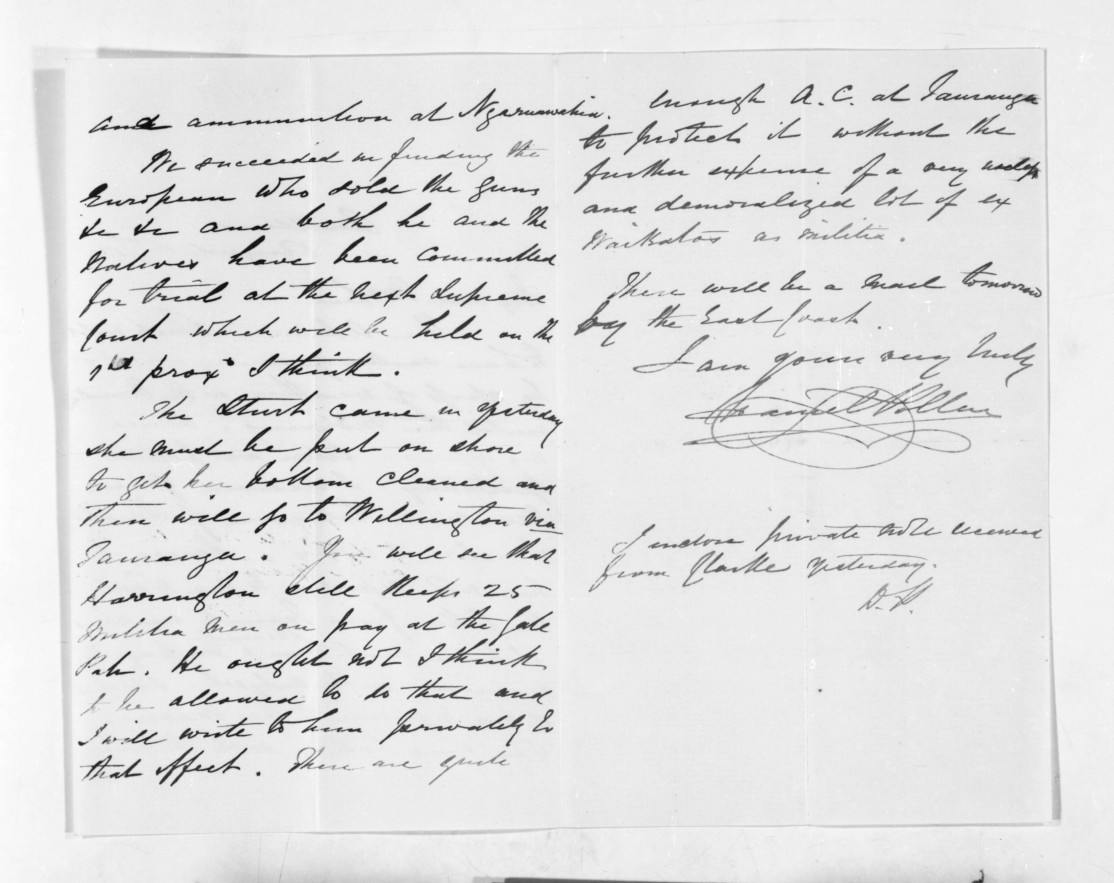 and ammunition at Ngaruawahia.
We succeeded in finding the
European who sold the guns
&c &c and both he and the
Natives have been committed
for trial at the next Supreme
Court which will be held on the
1st proxo I think.
The Sturt came in yesterday
she must be put on shore
to get her bottom cleaned and
then will go to Wellington via
Tauranga. You will see that
Harrington still keeps 25
Militia men on pay at the Gate
Pah. He ought not I think
to be allowed to do that and
I will write to him privately to
that effect. There are quite
enough A.C. at Tauranga
to protect it without the
further expense of a very useless
and demoralized lot of ex
Waikatos as militia.
There will be a mail tomorrow
by the East Coast.
I am yours very truly
Daniel Pollen
I enclose private note received
from Clarke yesterday.
D.P.